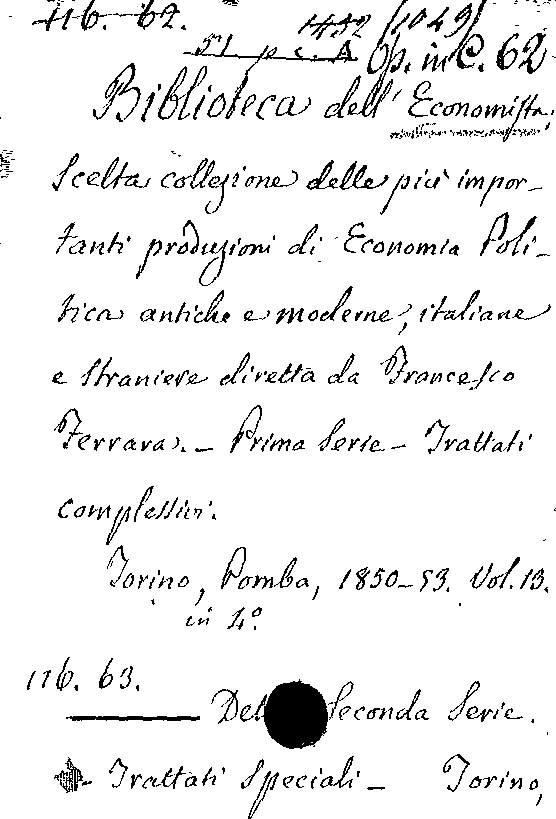 116. 62. 1432 (1049)
51 p. c. A Op. in C. 62
Biblioteca dell' Economista,
Scelta collezione delle più impor-
tanti produzioni di Economia Poli-
tica antiche e moderne, italiane
e straniere diretta da Francesco
Ferrara. - Prima Serie - Trattati
complessivi.
Torino, Pomba, 1850-53. Vol. 13.
in 4º
116. 63.
Seconda Serie.
- Trattati Speciali - Torino,